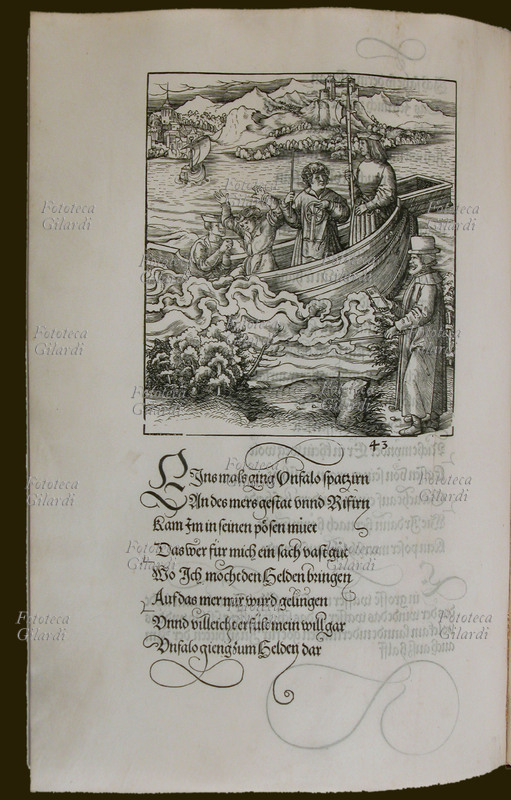 43
Eins mals ging Unfalo spatzirn
An des mers gestat vnnd Rifirn
Kam Im in seinen pösen muet
Das wer für mich ein sach vast guet
Wo Ich mocht den Helden bringen
Auf das mer mir wurd gelingen
Vnnd villeicht erfült mein will gar
Vnfalo gieng zum Helden dar
Fototeca
Gilardi
Fototeca
Gilardi
Fototeca
Gilardi
Fototeca
Gilardi
Fototeca
Gilardi
Fototeca
Gilardi
Fototeca
Gilardi
Fototeca
Gilardi